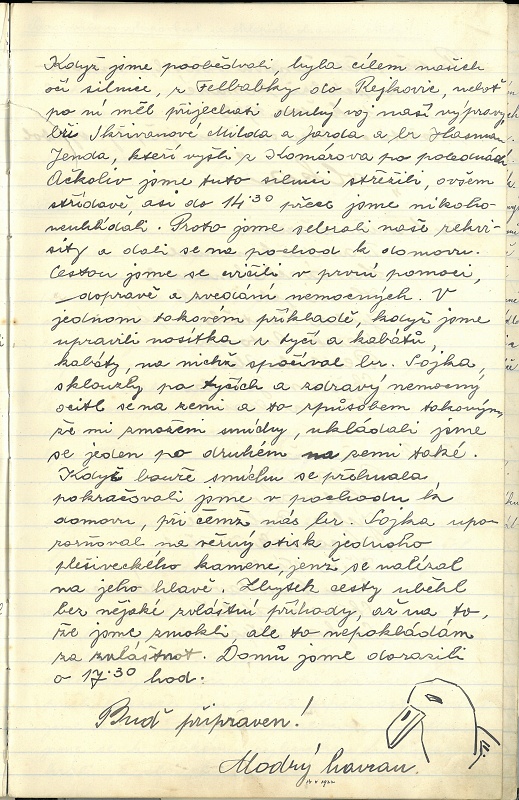 Když jsme poobědvali, byla cílem našich
očí silnice, z Felbabky do Rejkovic, neboť
po ní měl přijechati druhý voj naší výpravy,
bři Skřivanové Milda a Jarda a br. Hasman
Jenda, kteří vyšli z Komárova po polednách.
Ačkoliv jsme tuto silnici střežili, ovšem
střídavě, asi do 14·30 přece jsme nikoho
neuhlídali. Proto jsme sebrali naše rekvi-
sity a dali se na pochod k domovu.
Cestou jsme se cvičili v první pomoci,
dopravě a zvedání nemocných. V
jednom takovém příkladě, když jsme
upravili nosítka z tyčí a kabátů,
kabáty, na nichž spočíval br. Sojka,
sklouzly po tyčích a zdravý nemocný
ocitl se na zemi a to způsobem takovým,
že mi zmoženi smíchy, ukládali jsme
se jeden po druhém na zemi také.
Když bouře smíchu se přehnala
pokračovali jsme v pochodu k
domovu, při čemž nás br. Sojka upo-
zorňoval na věrný otisk jednoho
plešiveckého kamene, jenž se nalézal
na jeho hlavě. Zbytek cesty uběhl
bez nějaké zvláštní příhody, až na to,
že jsme zmokli, ale to nepokládám
za zvláštnost. Domů jsme dorazili
o 17·30 hod.
Buď připraven!
Modrý havran.